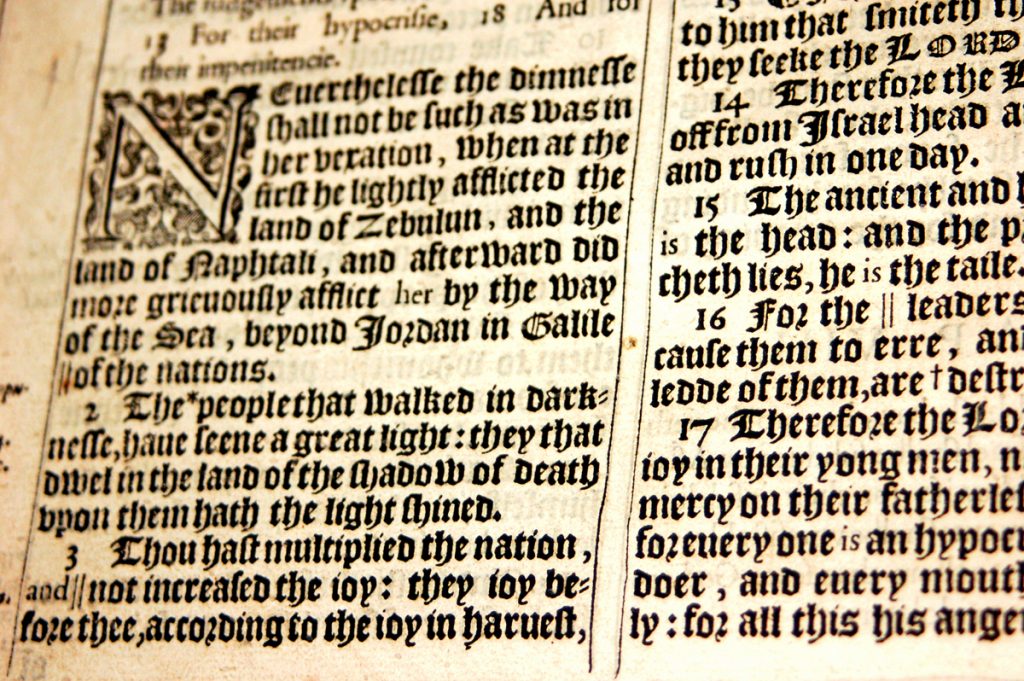 The
13 For their hypocrisie, 18 And for
their impenitencie.
NEuerthelesse the dimnesse
shall not be such as was in
her vexation, when at the
first he lightly afflicted the
land of Zebulun, and the
land of Naphtali, and afterward did
more grieuously afflict her by the way
of the Sea, beyond Jordan in Galile
||of the nations.
2 The *people that walked in dark-
nesse, haue seene a great light: they that
dwel in the land of the shadow of death
vpon them hath the light shined.
3 Thou hast multiplied the nation,
and||not increased the ioy: they ioy be-
fore thee, according to the ioy in haruest,
to him that smiteth
they seeke the LORD
14 Therefore the
off from Israel head
and rush in one day.
15 The ancient and
is the head: and the
cheth lies, he is the taile.
16 For the || leaders
cause them to erre,
ledde of them, are † destr
17 Therefore the Lo
ioy in their yong men,
mercy on their fatherles
for euery one is an hypoc
doer, and euery mouth
ly: for all this his anger